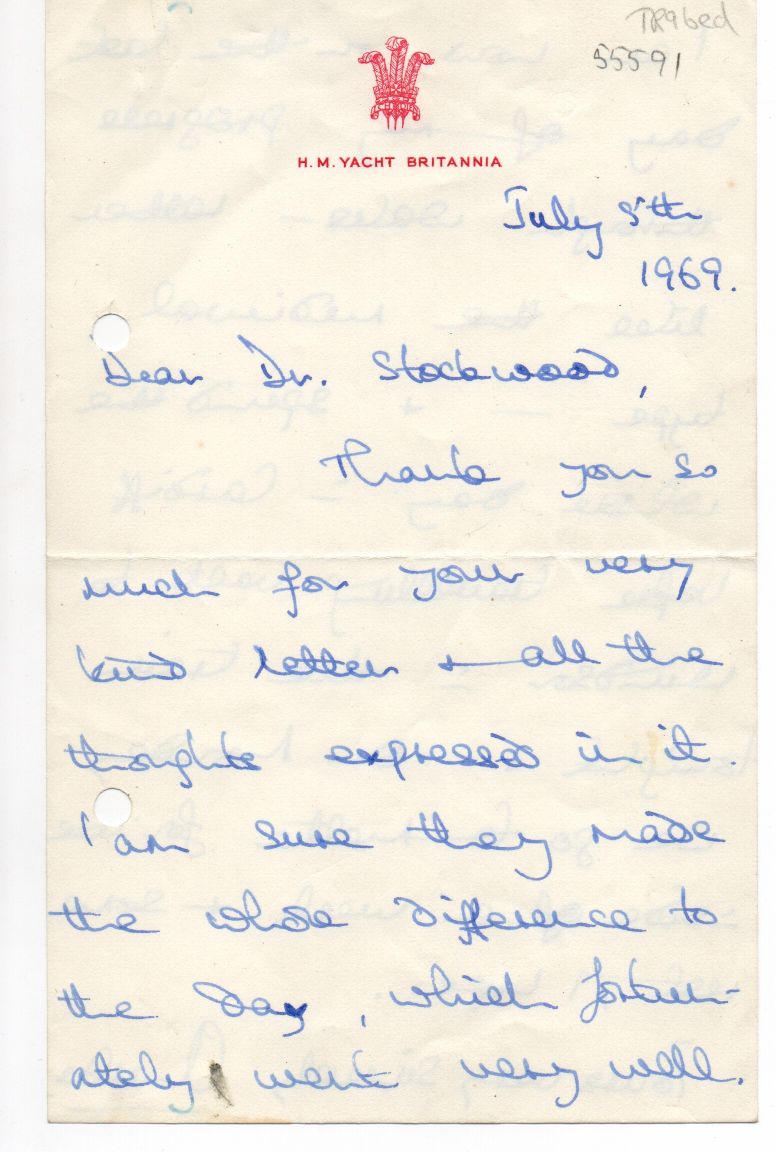 55591
H. M. YACHT BRITANNIA
July 5th
1969.
Dear Dr. Stockwood,
Thank you so
much for your very
kind letter + all the
thoughts expressed in it.
I am sure they made
the whole difference to
the day, which fortun-
ately went very well.